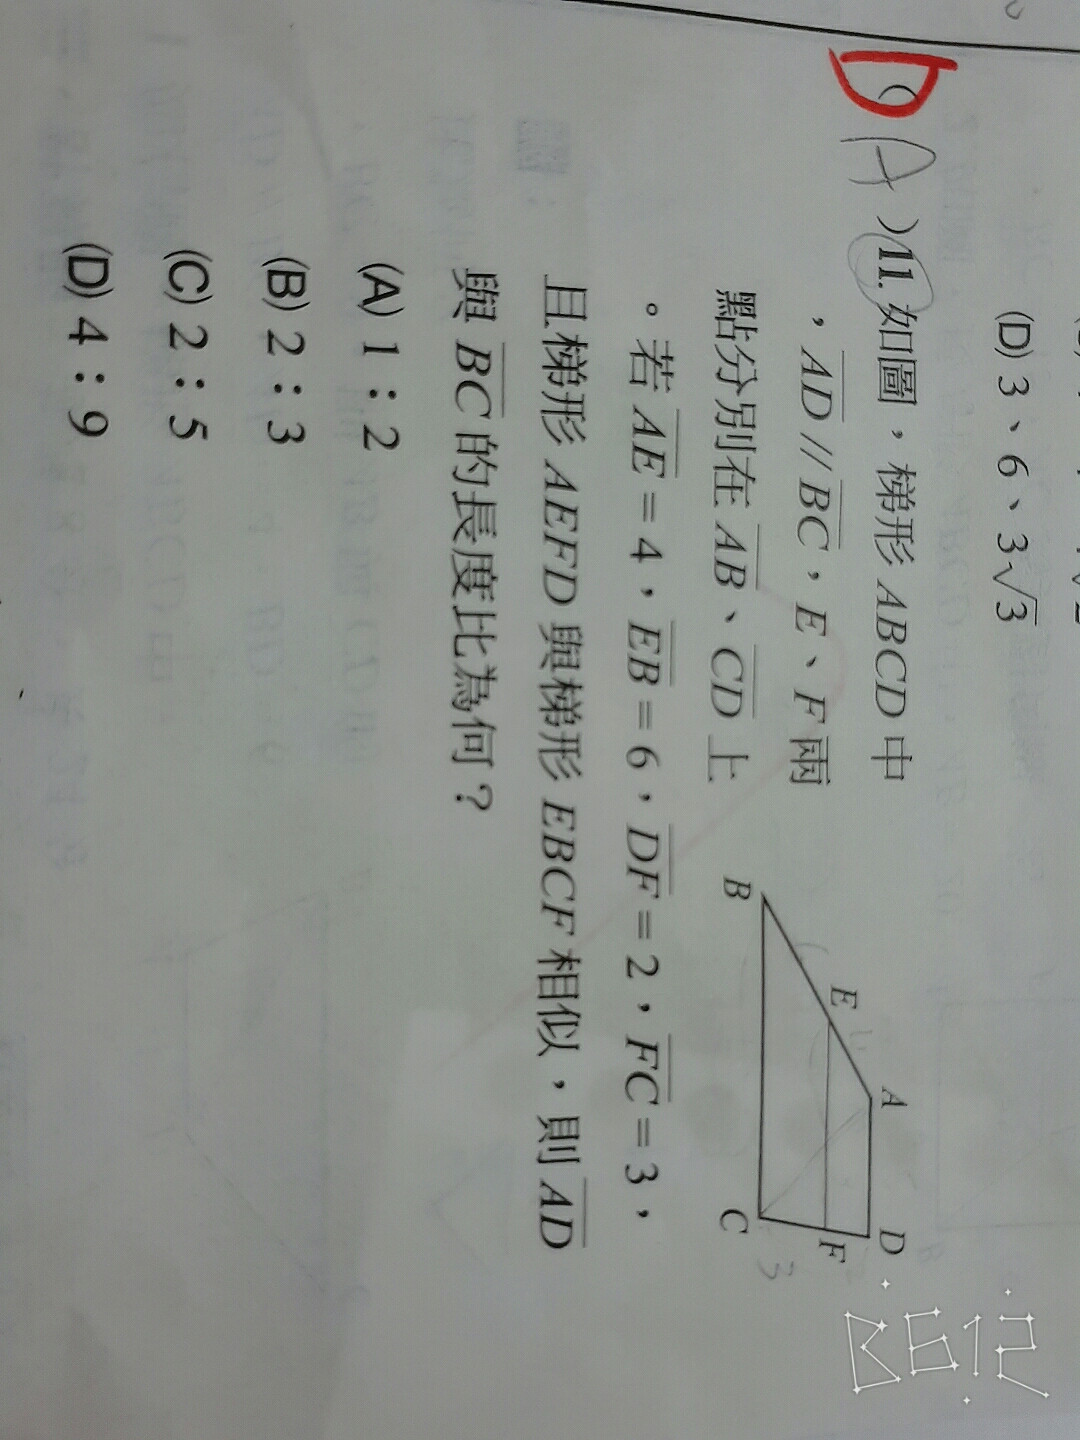 (D) 3、6、3√3
D
( A )11. 如圖，梯形 ABCD 中
，AD // BC，E、F 兩
點分別在 AB、CD 上
。若 AE = 4，EB = 6，DF = 2，FC = 3，
且梯形 AEFD 與梯形 EBCF 相似，則 AD
與 BC 的長度比為何？
(A) 1：2
(B) 2：3
(C) 2：5
(D) 4：9
A
D
E
F
B
C
3
B612